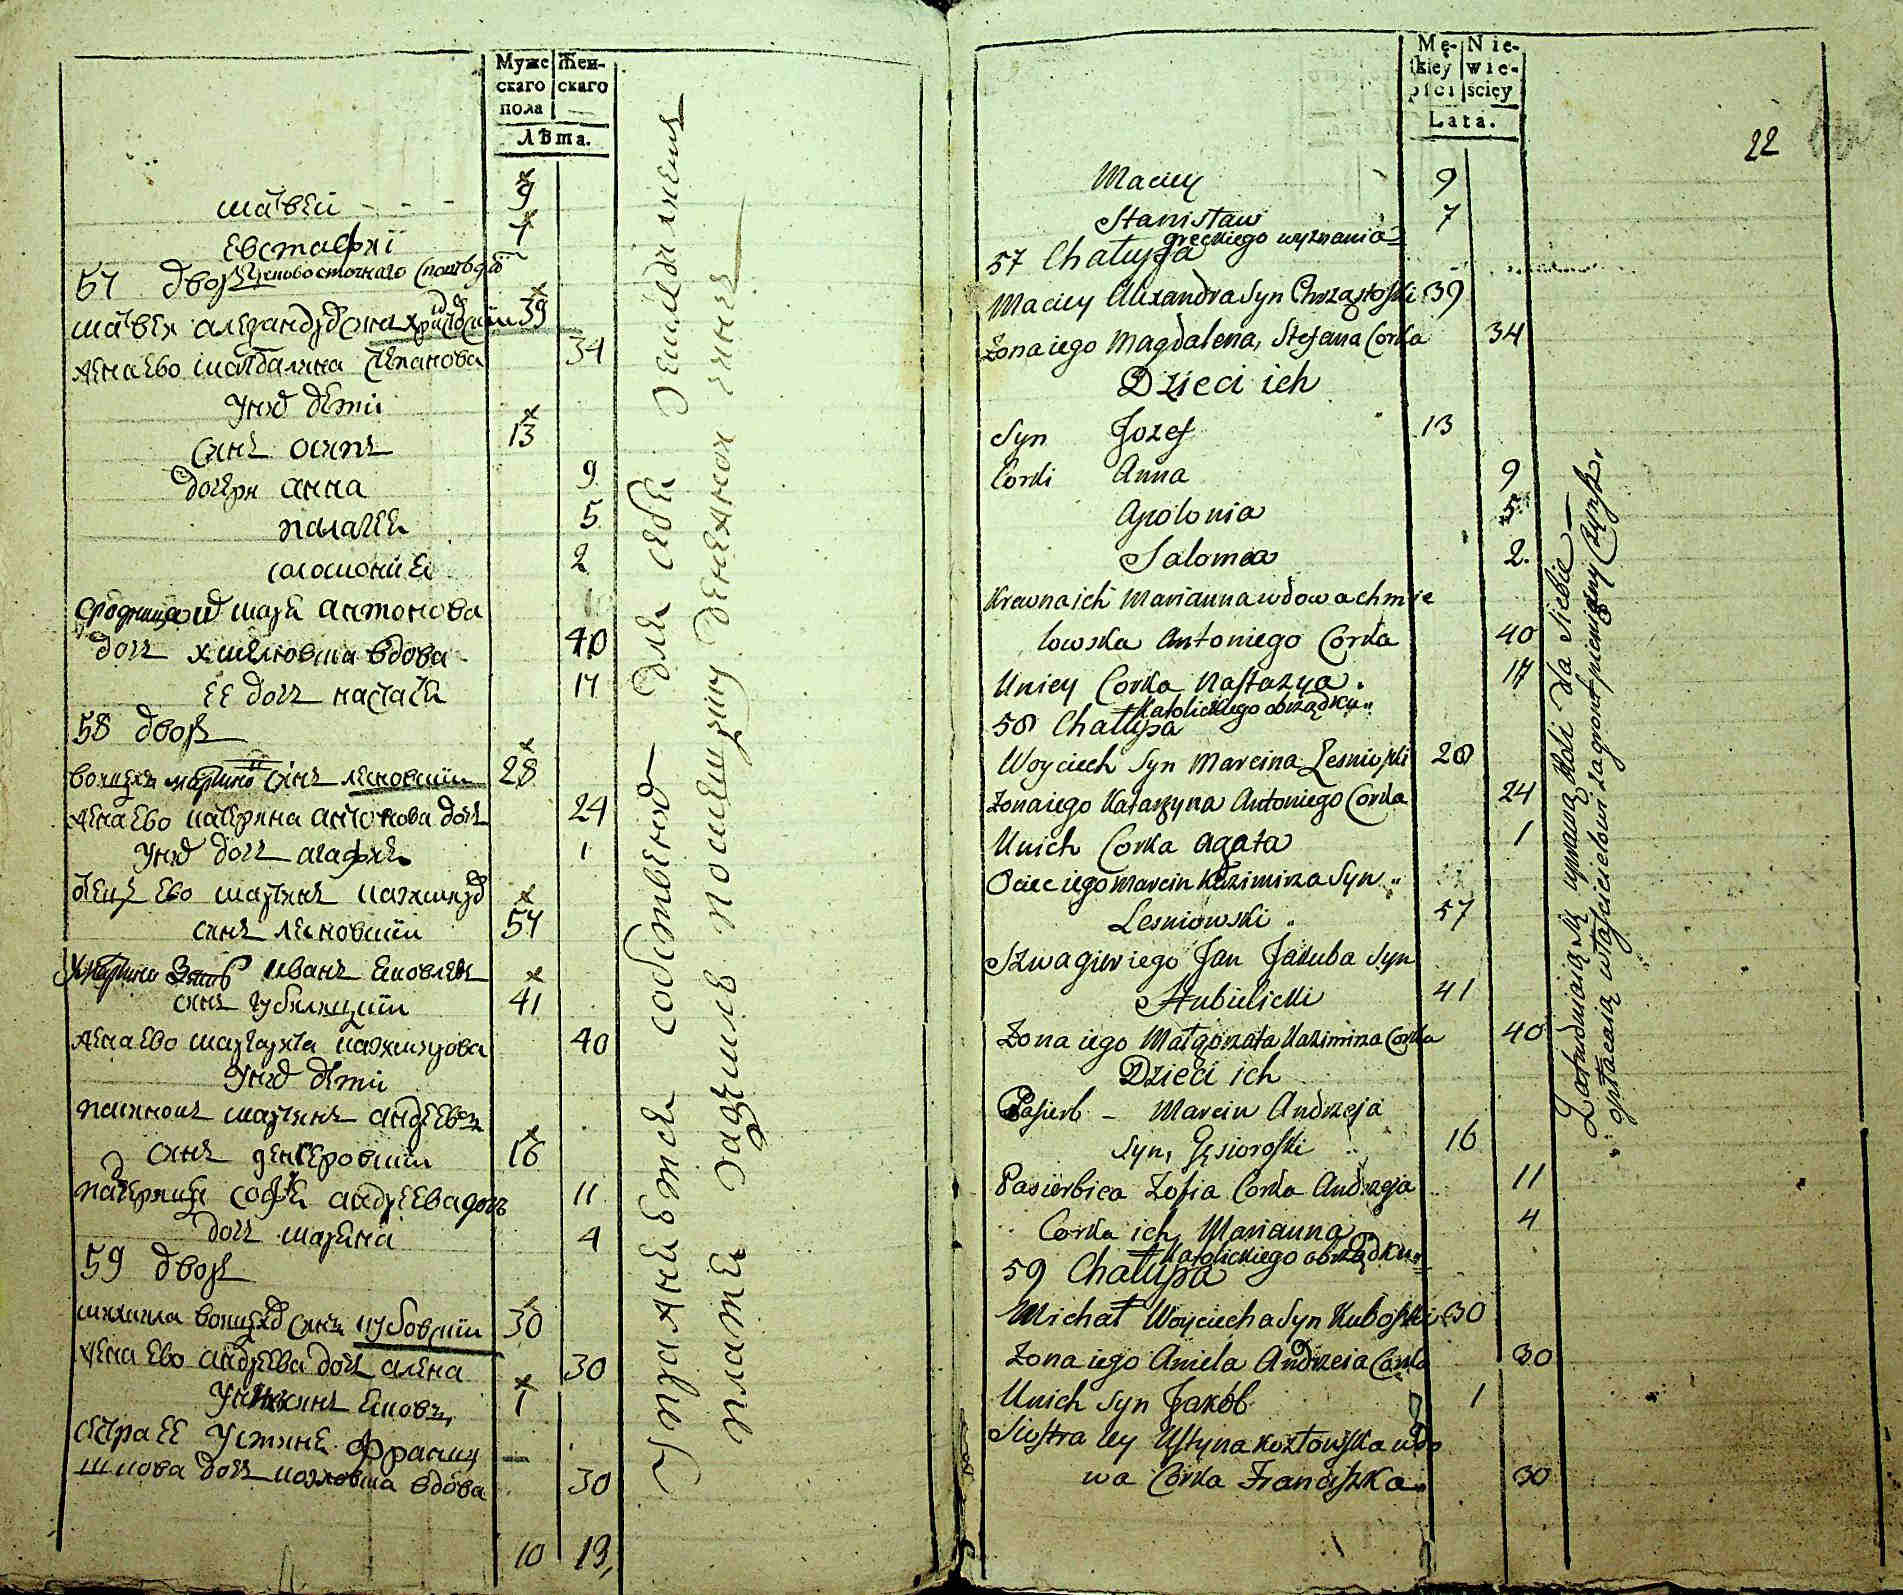 Муже Жен-
скаго скаго
пола
Лѣта.
матвей 9
Евстафiй 7
57 дворъ
матвей александровъ сынъ 39
жена ево магдалина степанова 34
у них дети
сынъ осипъ 13
дочери анна 9
палагея 5
соломония 2
марья антонова
дочь хмелювша вдова 40
ее дочь настася 17
58 дворъ
войцех мартинов сынъ лесновский 28
жена ево катерина антонова дочь 24
у них дочь агафия 1
отец ево мартинъ казимиров
сынъ лесновский 57
иванъ яковлев
сынъ 41
жена ево маргарита казимирова 40
у них дети
пасинокъ мартинъ андреевъ
сынъ 16
падчерица софия андреева дочь 11
дочь марiяна 4
59 дворъ
михаила войцехов сынъ кубовский 30
жена ево андреева дочь алена 30
у них сынъ яковъ 1
сестра ее устиня франци
шкова дочь козловша вдова 30
10 19
упражняется собственно для себя земледелием
платя помещику денежной чиншъ
Mę- Nie-
skiey wie-
płci ściey
Lata.
22
Maciey 9
Stanisław 7
greckiego wyznania
57 Chałupa
Maciey Alexandra Syn Chrząstoski 39
Żona iego Magdalena, Stefana Corka 34
Dzieci ich
Syn Jozef 13
Corki Anna 9
Apolonia 5
Salomea 2.
Krewna ich Marianna wdowa chmie
lowska Antoniego Corka 40
U niey Corka Nastazya. 17
Katolickiego obrządku
58 Chałupa
Woyciech Syn Marcina Lesnioski 28
Żona iego Katarzyna Antoniego Corka 24
U nich Corka Agata 1
Ociec iego Marcin Kazimirza Syn
Lesniowski 57
Szwagier iego Jan Jakuba Syn
Hubielicki 41
Żona iego Małgorzata Kazimirza Corka 40
Dzieci ich
Pasierb - Marcin Andrzeja
Syn, Gęsioroski 16
Pasierbica Zofia Corka Andrzeja 11
Corka ich, Marianna 4
Katolickiego obrządku
59 Chałupa
Michał Woyciecha Syn Kuboski 30
Żona iego Aniela Andrzeia Corka 30
U nich Syn Jakób 1
Siostra iey Ustyna Kozłowska wdo
wa Corka Franciszka 30
Zatrudniaią się uprawą Roli dla siebie
opłacaią właścicielowi za gront pieniężny Czynsz.